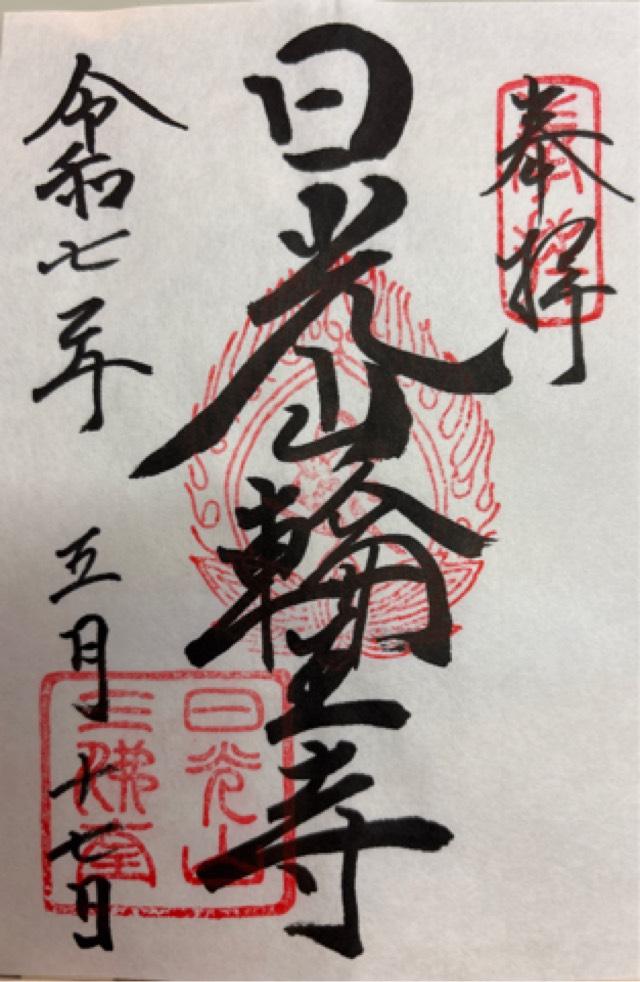 奉拝
日光山輪王寺
令和七年 五月 十七日
日光山
三佛堂